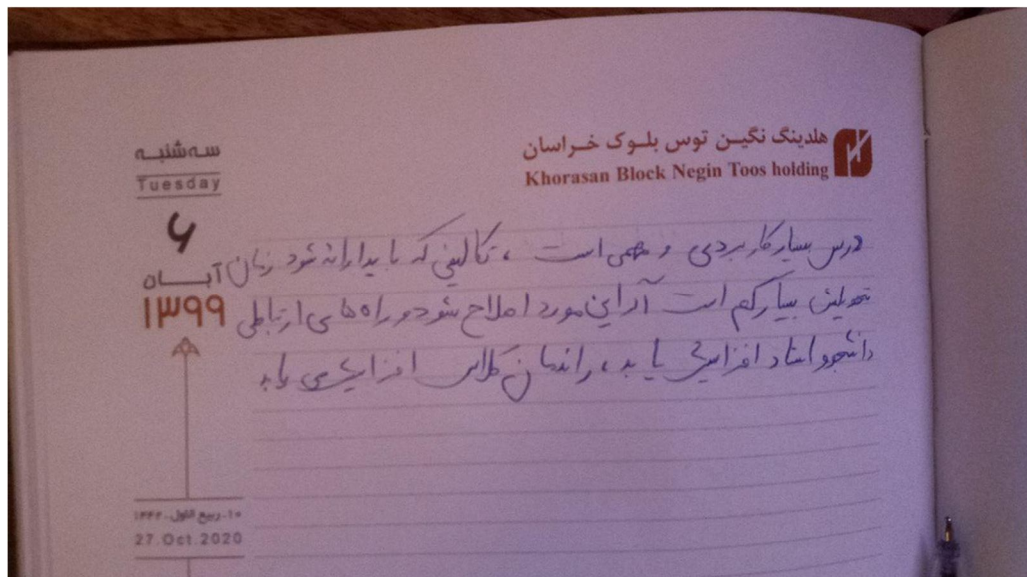 هلدینگ نگیـن توس بلـوک خـراسان
Khorasan Block Negin Toos holding
سـه‌شنبـه
Tuesday
۶
آبـــاه
۱۳۹۹
درس بسیار کاربردی و مهمی است ، تکالیفی که باید ارائه شود زمان
تحویلش بسیار کم است اگر این مورد اصلاح شود و راه های ارتباطی
دانشجو و استاد افزایش یابد ، راندمان کلاس افزایش می یابد
۱۰-ربیع الاول-۱۴۴۲
27.Oct.2020